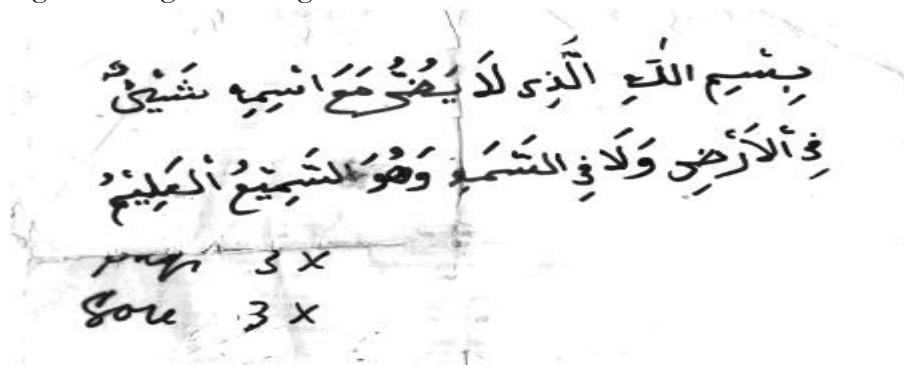 بِسْمِ اللّٰهِ الَّذِى لَا يَضُرُّ مَعَ اسْمِهِ شَيْئٌ
فِى اْلاَرْضِ وَلَا فِى السَّمَءِ وَهُوَ السَّمِيْعُ اْلعَلِيْمُ
pagi 3 x
Sore 3 x